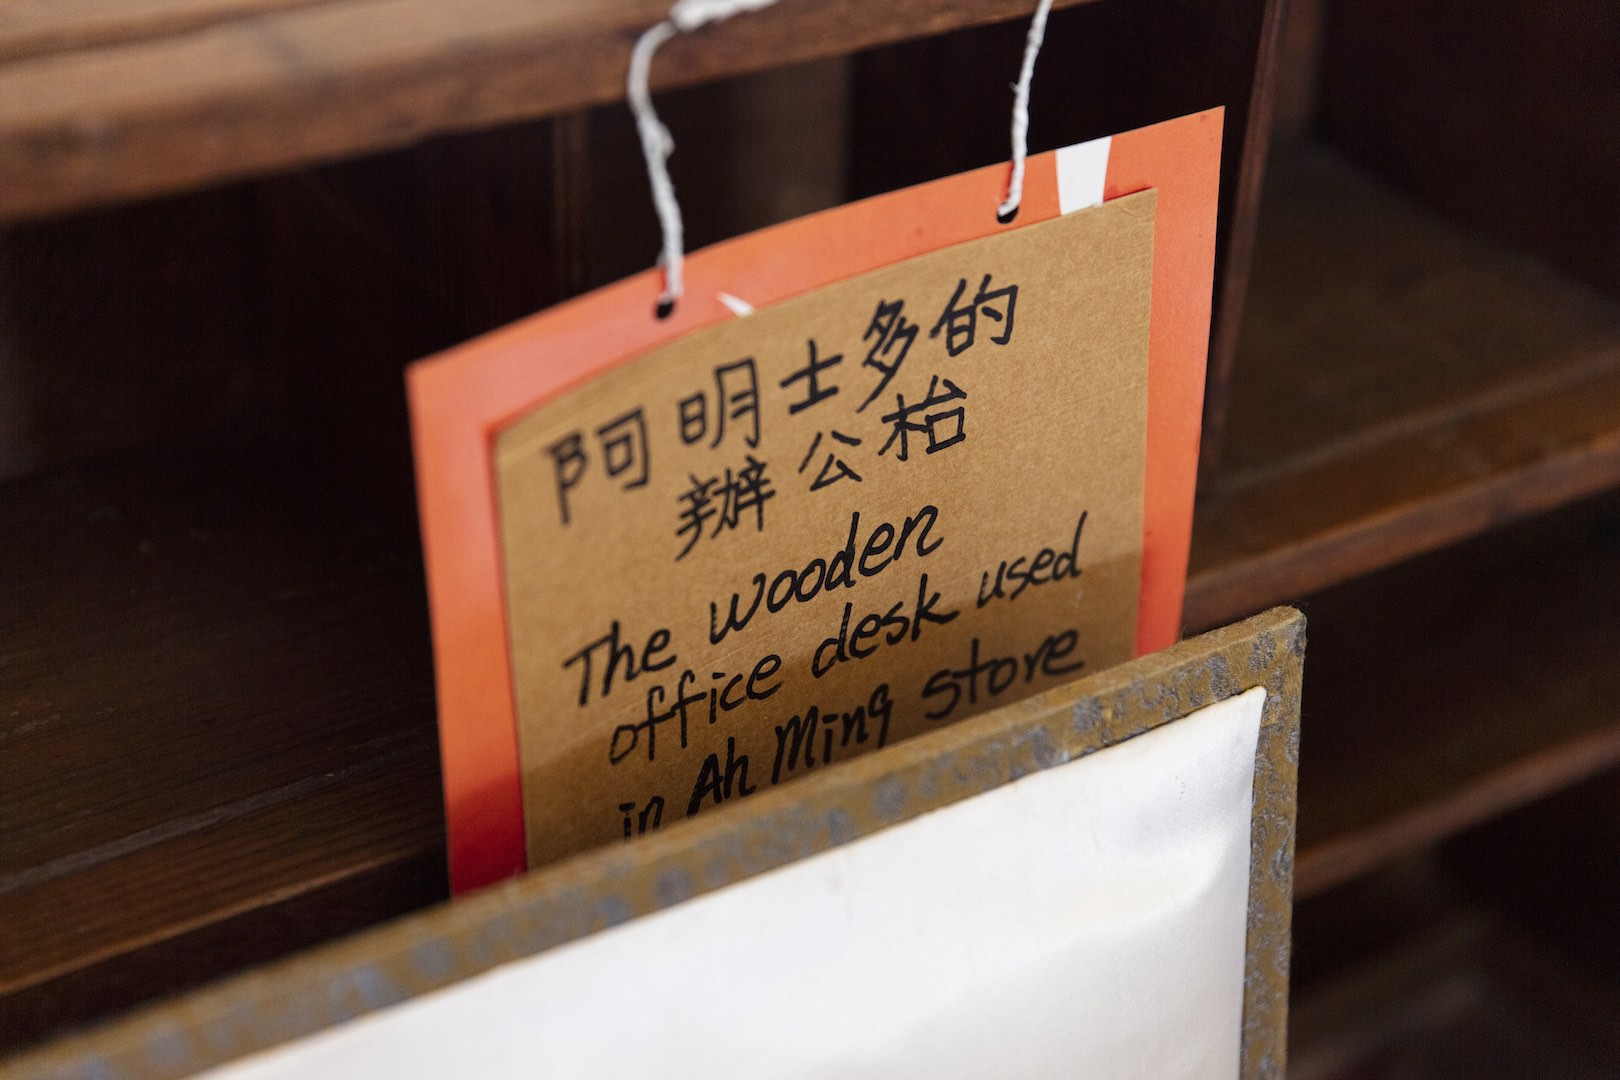 阿明士多的
辦公枱
The wooden
office desk used
in Ah Ming store